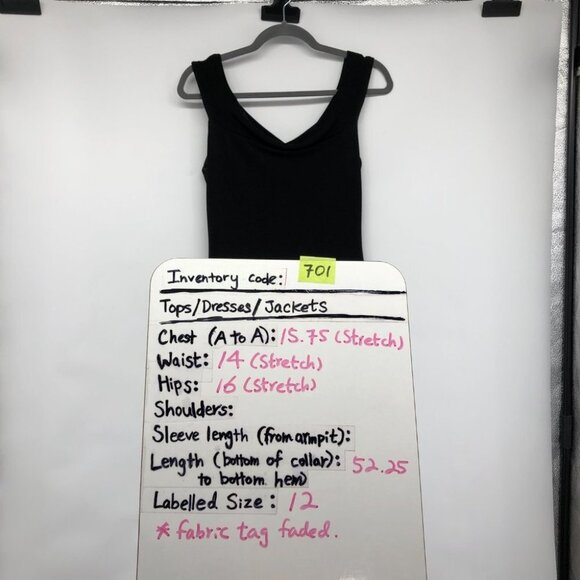 Inventory code: 701
Tops/Dresses/Jackets
Chest (A to A): 15.75 (Stretch)
Waist: 14 (Stretch)
Hips: 16 (Stretch)
Shoulders:
Sleeve length (from armpit):
Length (bottom of collar): 52.25
to bottom hem)
Labelled Size: 12
* fabric tag faded.